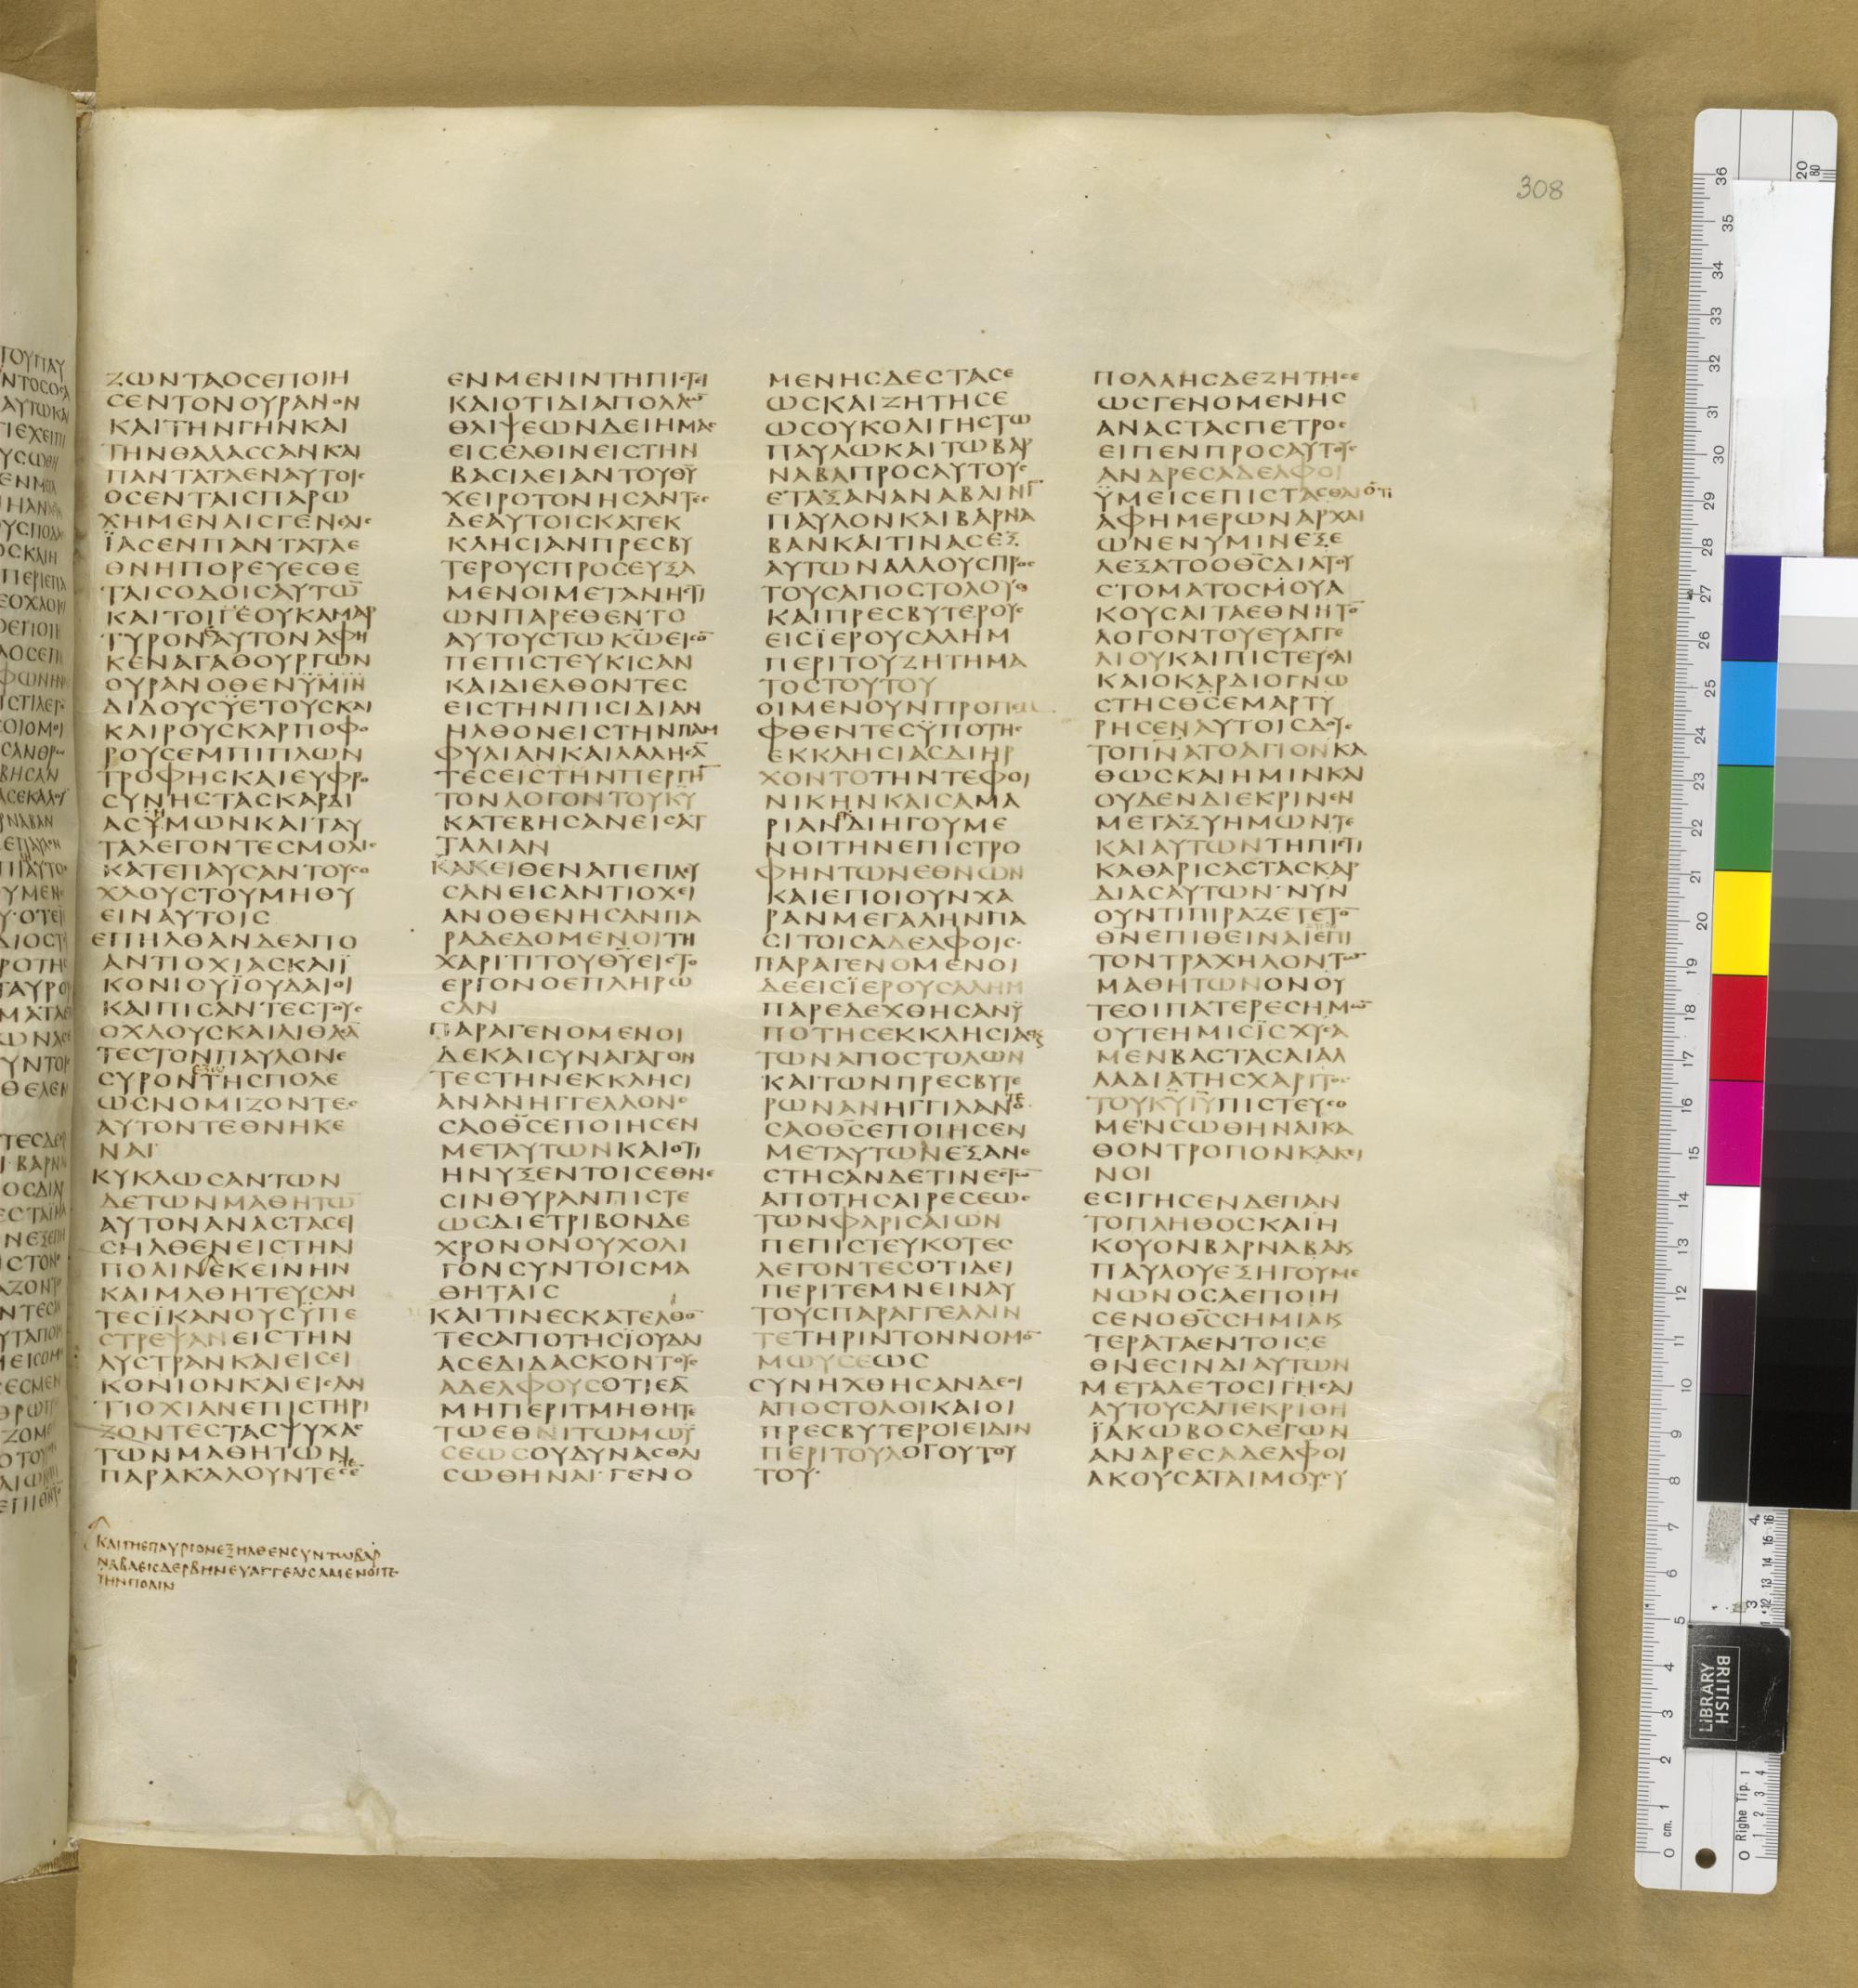 308
ΖΩΝΤΑΟϹΕΠΟΙΗ
ϹΕΝΤΟΝΟΥΡΑΝΟΝ
ΚΑΙΤΗΝΓΗΝΚΑΙ
ΤΗΝΘΑΛΑϹϹΑΝΚΑΙ
ΠΑΝΤΑΤΑΕΝΑΥΤΟΙϹ
ΟϹΕΝΤΑΙϹΠΑΡΩ
ΧΗΜΕΝΑΙϹΓΕΝΕΑΙϹ
ΪΑϹΕΝΠΑΝΤΑΤΑΕ
ΘΝΗΠΟΡΕΥΕϹΘΕ
ΤΑΙϹΟΔΟΙϹΑΥΤΩ̅
ΚΑΙΤΟΙΓΕΟΥΚΑΜΑΡ
ΤΥΡΟΝΑΥΤΟΝΑΦΗ
ΚΕΝΑΓΑΘΟΥΡΓΩΝ
ΟΥΡΑΝΟΘΕΝΫΜΙΝ
ΔΙΔΟΥϹΫΕΤΟΥϹΚΑΙ
ΚΑΙΡΟΥϹΚΑΡΠΟΦΟ
ΡΟΥϹΕΜΠΙΠΛΩΝ
ΤΡΟΦΗϹΚΑΙΕΥΦΡΟ
ϹΥΝΗϹΤΑϹΚΑΡΔΙ
ΑϹΫΜΩΝΚΑΙΤΑΥ
ΤΑΛΕΓΟΝΤΕϹΜΟΛΙϹ
ΚΑΤΕΠΑΥϹΑΝΤΟΥϹΟ
ΧΛΟΥϹΤΟΥΜΗΘΥ
ΕΙΝΑΥΤΟΙϹ
ΕΠΗΛΘΑΝΔΕΑΠΟ
ΑΝΤΙΟΧΙΑϹΚΑΙΪ
ΚΟΝΙΟΥΪΟΥΔΑΙΟΙ
ΚΑΙΠΙϹΑΝΤΕϹΤΟΥϹ
ΟΧΛΟΥϹΚΑΙΛΙΘΑϹΑ̅
ΤΕϹΤΟΝΠΑΥΛΟΝΕ
ϹΥΡΟΝΤΗϹΠΟΛΕ
ΩϹΝΟΜΙΖΟΝΤΕϹ
ΑΥΤΟΝΤΕΘΝΗΚΕ
ΝΑΙ
ΚΥΚΛΩϹΑΝΤΩΝ
ΔΕΤΩΝΜΑΘΗΤΩ̅
ΑΥΤΟΝΑΝΑϹΤΑϹΕΙ
ϹΗΛΘΕΝΕΙϹΤΗΝ
ΠΟΛΙΝΕΚΕΙΝΗΝ
ΚΑΙΜΑΘΗΤΕΥϹΑΝ
ΤΕϹΪΚΑΝΟΥϹΫΠΕ
ϹΤΡΕΨΑΝΕΙϹΤΗΝ
ΛΥϹΤΡΑΝΚΑΙΕΙϹΕΙ
ΚΟΝΙΟΝΚΑΙΕΙϹΑΝ
ΤΙΟΧΙΑΝΕΠΙϹΤΗΡΙ
ΖΟΝΤΕϹΤΑϹΨΥΧΑϹ
ΤΩΝΜΑΘΗΤΩΝ
ΠΑΡΑΚΑΛΟΥΝΤΕϹ
ΚΑΙΤΗΕΠΑΥΡΙΟΝΕΞΗΛΘΕΝϹΥΝΤΩΒΑΡ
ΝΑΒΑΕΙϹΔΕΡΒΗΝΕΥΑΓΓΕΛΙϹΑΜΕΝΟΙΤΕ
ΤΗΝΠΟΛΙΝ
ΕΝΜΕΝΙΝΤΗΠΙϹΤΙ
ΚΑΙΟΤΙΔΙΑΠΟΛΛΩ̅
ΘΛΙΨΕΩΝΔΕΙΗΜΑϹ
ΕΙϹΕΛΘΙΝΕΙϹΤΗΝ
ΒΑϹΙΛΕΙΑΝΤΟΥΘ̅Υ̅
ΧΕΙΡΟΤΟΝΗϹΑΝΤΕϹ
ΔΕΑΥΤΟΙϹΚΑΤΕΚ
ΚΛΗϹΙΑΝΠΡΕϹΒΥ
ΤΕΡΟΥϹΠΡΟϹΕΥΞΑ
ΜΕΝΟΙΜΕΤΑΝΗϹΤΙ
ΩΝΠΑΡΕΘΕΝΤΟ
ΑΥΤΟΥϹΤΩΚ̅Ω̅ΕΙϹΟ̅
ΠΕΠΙϹΤΕΥΚΙϹΑΝ
ΚΑΙΔΙΕΛΘΟΝΤΕϹ
ΕΙϹΤΗΝΠΙϹΙΔΙΑΝ
ΗΛΘΟΝΕΙϹΤΗΝΠΑΜ
ΦΥΛΙΑΝΚΑΙΛΑΛΗϹΑ̅
ΤΕϹΕΙϹΤΗΝΠΕΡΓΗ̅
ΤΟΝΛΟΓΟΝΤΟΥΚ̅Υ̅
ΚΑΤΕΒΗϹΑΝΕΙϹΑΤ
ΤΑΛΙΑΝ
ΚΑΚΕΙΘΕΝΑΠΕΠΛΕΥ
ϹΑΝΕΙϹΑΝΤΙΟΧΕΙ
ΑΝΟΘΕΝΗϹΑΝΠΑ
ΡΑΔΕΔΟΜΕΝΟΙΤΗ
ΧΑΡΙΤΙΤΟΥΘ̅Υ̅ΕΙϹΤΟ
ΕΡΓΟΝΟΕΠΛΗΡΩ
ϹΑΝ
ΠΑΡΑΓΕΝΟΜΕΝΟΙ
ΔΕΚΑΙϹΥΝΑΓΑΓΟΝ
ΤΕϹΤΗΝΕΚΚΛΗϹΙ
ΑΝΑΝΗΓΓΕΛΛΟΝΟ
ϹΑΟΘ̅Ϲ̅ΕΠΟΙΗϹΕΝ
ΜΕΤΑΥΤΩΝΚΑΙΟΤΙ
ΗΝΥΞΕΝΤΟΙϹΕΘΝΕ
ϹΙΝΘΥΡΑΝΠΙϹΤΕ
ΩϹΔΙΕΤΡΙΒΟΝΔΕ
ΧΡΟΝΟΝΟΥΧΟΛΙ
ΓΟΝϹΥΝΤΟΙϹΜΑ
ΘΗΤΑΙϹ
ΚΑΙΤΙΝΕϹΚΑΤΕΛΘΟ̅
ΤΕϹΑΠΟΤΗϹΪΟΥΔΑΙ
ΑϹΕΔΙΔΑϹΚΟΝΤΟΥϹ
ΑΔΕΛΦΟΥϹΟΤΙΕΑ̅
ΜΗΠΕΡΙΤΜΗΘΗΤΕ
ΤΩΕΘΝΙΤΩΜΩΫ
ϹΕΩϹΟΥΔΥΝΑϹΘΑΙ
ϹΩΘΗΝΑΙ·ΓΕΝΟ
ΜΕΝΗϹΔΕϹΤΑϹΕ
ΩϹΚΑΙΖΗΤΗϹΕ
ΩϹΟΥΚΟΛΙΓΗϹΤΩ
ΠΑΥΛΩΚΑΙΤΩΒΑΡ
ΝΑΒΑΠΡΟϹΑΥΤΟΥϹ
ΕΤΑΞΑΝΑΝΑΒΑΙΝΙ̅
ΠΑΥΛΟΝΚΑΙΒΑΡΝΑ
ΒΑΝΚΑΙΤΙΝΑϹΕΞ
ΑΥΤΩΝΑΛΛΟΥϹΠΡΟϹ
ΤΟΥϹΑΠΟϹΤΟΛΟΥϹ
ΚΑΙΠΡΕϹΒΥΤΕΡΟΥϹ
ΕΙϹΪΕΡΟΥϹΑΛΗΜ
ΠΕΡΙΤΟΥΖΗΤΗΜΑ
ΤΟϹΤΟΥΤΟΥ
ΟΙΜΕΝΟΥΝΠΡΟΠΕΜ
ΦΘΕΝΤΕϹΫΠΟΤΗϹ
ΕΚΚΛΗϹΙΑϹΔΙΗΡ
ΧΟΝΤΟΤΗΝΤΕΦΟΙ
ΝΙΚΗΝΚΑΙϹΑΜΑ
ΡΙΑΝΔΙΗΓΟΥΜΕ
ΝΟΙΤΗΝΕΠΙϹΤΡΟ
ΦΗΝΤΩΝΕΘΝΩΝ
ΚΑΙΕΠΟΙΟΥΝΧΑ
ΡΑΝΜΕΓΑΛΗΝΠΑ
ϹΙΤΟΙϹΑΔΕΛΦΟΙϹ·
ΠΑΡΑΓΕΝΟΜΕΝΟΙ
ΔΕΕΙϹΪΕΡΟΥϹΑΛΗΜ
ΠΑΡΕΔΕΧΘΗϹΑΝΫ
ΠΟΤΗϹΕΚΚΛΗϹΙΑϹ
ΤΩΝΑΠΟϹΤΟΛΩΝ
ΚΑΙΤΩΝΠΡΕϹΒΥΤΕ
ΡΩΝΑΝΗΓΓΙΛΑΝΤΕΟ
ϹΑΟΘ̅Ϲ̅ΕΠΟΙΗϹΕΝ
ΜΕΤΑΥΤΩΝΕΞΑΝΕ
ϹΤΗϹΑΝΔΕΤΙΝΕϹΤΩ̅
ΑΠΟΤΗϹΑΙΡΕϹΕΩϹ
ΤΩΝΦΑΡΙϹΑΙΩΝ
ΠΕΠΙϹΤΕΥΚΟΤΕϹ
ΛΕΓΟΝΤΕϹΟΤΙΔΕΙ
ΠΕΡΙΤΕΜΝΕΙΝΑΥ
ΤΟΥϹΠΑΡΑΓΓΕΛΛΙΝ
ΤΕΤΗΡΙΝΤΟΝΝΟΜΟ̅
ΜΩΥϹΕΩϹ
ϹΥΝΗΧΘΗϹΑΝΔΕΟΙ
ΑΠΟϹΤΟΛΟΙΚΑΙΟΙ
ΠΡΕϹΒΥΤΕΡΟΙΕΙΔΙΝ
ΠΕΡΙΤΟΥΛΟΓΟΥΤΟΥ
ΤΟΥ·
ΠΟΛΛΗϹΔΕΖΗΤΗϹΕ
ΩϹΓΕΝΟΜΕΝΗϹ
ΑΝΑϹΤΑϹΠΕΤΡΟϹ
ΕΙΠΕΝΠΡΟϹΑΥΤΟΥϹ
ΑΝΔΡΕϹΑΔΕΛΦΟΙ
ΫΜΕΙϹΕΠΙϹΤΑϹΘΑΙΟΤΙ
ΑΦΗΜΕΡΩΝΑΡΧΑΙ
ΩΝΕΝΥΜΙΝΕΞΕ
ΛΕΞΑΤΟΟΘ̅Ϲ̅ΔΙΑΤΟΥ
ϹΤΟΜΑΤΟϹΜΟΥΑ
ΚΟΥϹΑΙΤΑΕΘΝΗΤΟ̅
ΛΟΓΟΝΤΟΥΕΥΑΓΓΕ
ΛΙΟΥΚΑΙΠΙϹΤΕΥϹΑΙ
ΚΑΙΟΚΑΡΔΙΟΓΝΩ
ϹΤΗϹΘ̅Ϲ̅ΕΜΑΡΤΥ
ΡΗϹΕΝΑΥΤΟΙϹΔΟΥϹ
ΤΟΠ̅Ν̅ΑΤΟΑΓΙΟΝΚΑ
ΘΩϹΚΑΙΗΜΙΝΚΑΙ
ΟΥΔΕΝΔΙΕΚΡΙΝΕΝ
ΜΕΤΑΞΥΗΜΩΝΤΕ
ΚΑΙΑΥΤΩΝΤΗΠΙϹΤΙ
ΚΑΘΑΡΙϹΑϹΤΑϹΚΑΡ
ΔΙΑϹΑΥΤΩΝ·ΝΥΝ
ΟΥΝΤΙΠΙΡΑΖΕΤΕΤΟ̅
Θ̅Ν̅ΕΠΙΘΕΙΝΑΙΕΠΙ
ΤΟΝΤΡΑΧΗΛΟΝΤΩ̅
ΜΑΘΗΤΩΝΟΝΟΥ
ΤΕΟΙΠΑΤΕΡΕϹΗΜΩ̅
ΟΥΤΕΗΜΙϹΪϹΧΥϹΑ
ΜΕΝΒΑϹΤΑϹΑΙΑΛ
ΛΑΔΙΑΤΗϹΧΑΡΙΤΟϹ
ΤΟΥΚ̅Υ̅Ι̅Υ̅ΠΙϹΤΕΥϹΟ
ΜΕΝϹΩΘΗΝΑΙΚΑ
ΘΟΝΤΡΟΠΟΝΚΑΚΕΙ
ΝΟΙ
ΕϹΙΓΗϹΕΝΔΕΠΑΝ
ΤΟΠΛΗΘΟϹΚΑΙΗ
ΚΟΥΟΝΒΑΡΝΑΒΑΚ
ΠΑΥΛΟΥΕΞΗΓΟΥΜΕ
ΝΩΝΟϹΑΕΠΟΙΗ
ϹΕΝΟΘ̅Ϲ̅ϹΗΜΙΑΚ
ΤΕΡΑΤΑΕΝΤΟΙϹΕ
ΘΝΕϹΙΝΔΙΑΥΤΩΝ
ΜΕΤΑΔΕΤΟϹΙΓΗϹΑΙ
ΑΥΤΟΥϹΑΠΕΚΡΙΘΗ
ΪΑΚΩΒΟϹΛΕΓΩΝ
ΑΝΔΡΕϹΑΔΕΛΦΟΙ
ΑΚΟΥϹΑΤΑΙΜΟΥϹΥ
BRITISH
LIBRARY
Righe Tip. 1
cm.